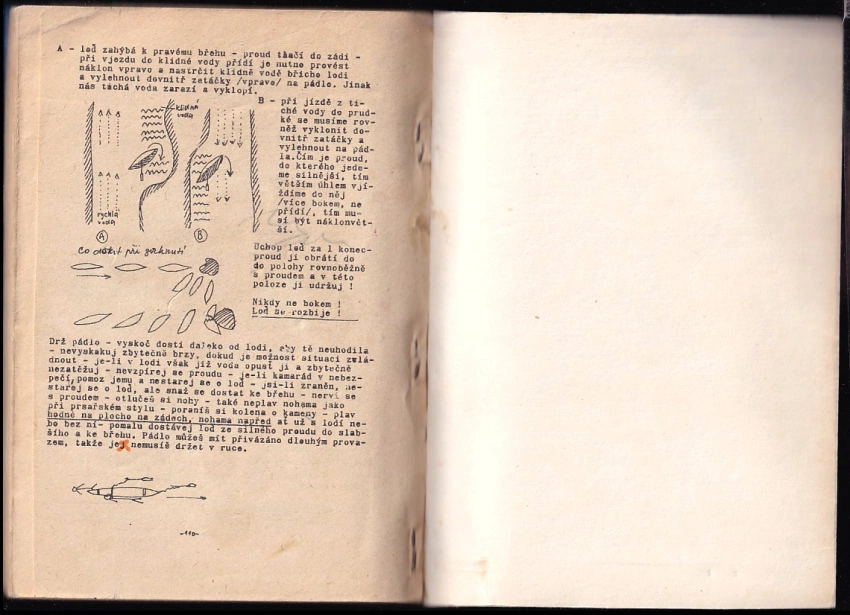 A - loď zahýbá k pravému břehu - proud tlačí do zádi -
při vjezdu do klidné vody přídí je nutno provést
náklon vpravo a nastrčit klidné vodě břicho lodi
a vylehnout dovnitř zatáčky /vpravo/ na pádle. Jinak
nás tichá voda zarazí a vyklopí.
klidná
voda
rychlá
voda
A
B
B - při jízdě z ti-
ché vody do prud-
ké se musíme rov-
něž vyklonit do-
vnitř zatáčky a
vylehnout na pád-
la.Čím je proud,
do kterého jede-
me silnější, tím
větším úhlem vjí-
ždíme do něj
/více bokem, ne
přídí/, tím mu-
sí být náklonvět-
ší.
Co při
Uchop loď za 1 konec-
proud ji obrátí do
do polohy rovnoběžné
s proudem a v této
poloze ji udržuj !
Nikdy ne bokem !
Loď se rozbije !
Drž pádlo - vyskoč dosti daleko od lodi, aby tě neuhodila
- nevyskakuj zbytečně brzy, dokud je možnost situaci zvlá-
dnout - je-li v lodi však již voda opusť ji a zbytečně
nezatěžuj - nevzpírej se proudu - je-li kamarád v nebez-
pečí,pomoz jemu a nestarej se o loď - jsi-li zraněn, ne-
starej se o loď, ale snaž se dostat ke břehu - nervi se
s proudem - otlučeš si nohy - také neplav nohama jako
při prsařském stylu - poraníš si kolena o kameny - plav
hodně na plocho na zádech, nohama napřed ať už s lodí ne-
bo bez ní- pomalu dostávej loď ze silného proudu do slab-
šího a ke břehu. Pádlo můžeš mít přivázáno dlouhým prova-
zem, takže jej nemusíš držet v ruce.
-110-